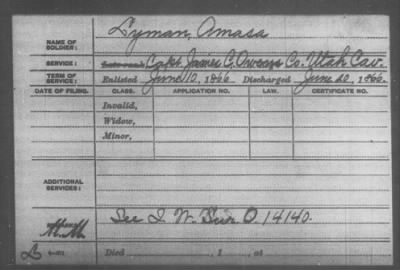 NAME OF SOLDIER: Lyman, Amasa
SERVICE: Capt. James C. Owens Co. Utah Cav.
TERM OF SERVICE: Enlisted June 10, 1866. Discharged June 20, 1866.
DATE OF FILING. CLASS. APPLICATION NO. LAW. CERTIFICATE NO.
Invalid,
Widow,
Minor,
ADDITIONAL SERVICES:
See I. W. Sur. O 14140.
Died , 1 , at